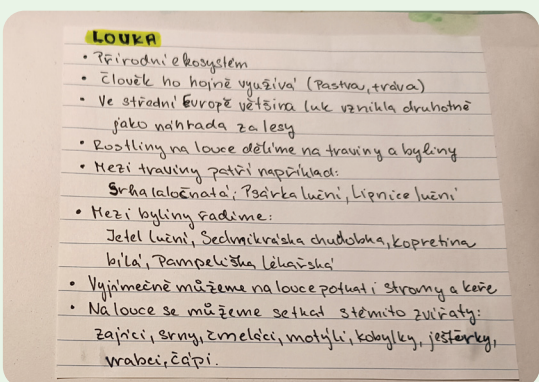 LOUKA
• Přírodní ekosystém
• Člověk ho hojně využívá (Pastva, tráva)
• Ve střední Evropě většina luk vznikla druhotně
jako náhrada za lesy
• Rostliny na louce dělíme na traviny a byliny
• Mezi traviny patří například:
Srha laločnatá, Psárka luční, Lipnice luční
• Mezi byliny řadíme:
Jetel luční, Sedmikráska chudobka, kopretina
bílá, Pampeliška lékařská
• Vyjímečně můžeme na louce potkat i stromy a keře
• Na louce se můžeme setkat s těmito zvířaty:
zajíci, srny, čmeláci, motýli, kobylky, ještěrky,
vrabci, čápi.